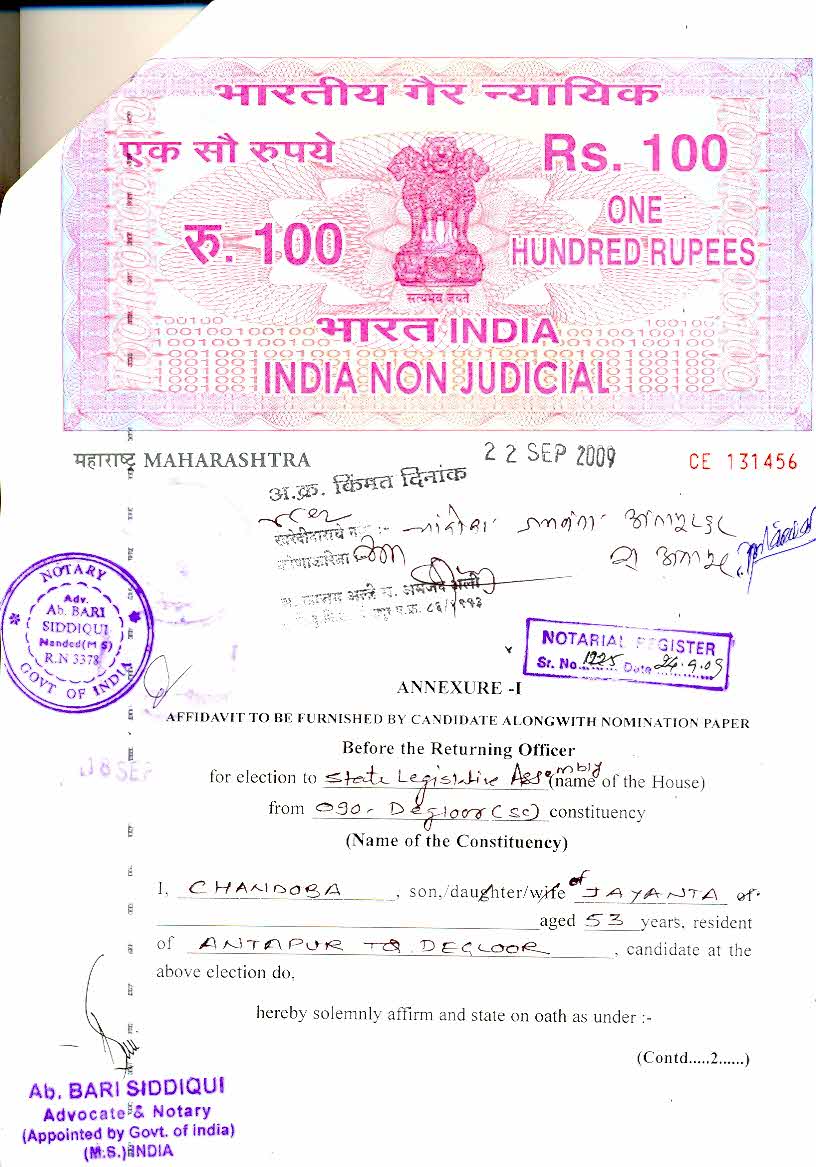 भारतीय गैर न्यायिक
एक सौ रुपये
Rs. 100
रु. 100
ONE
HUNDRED RUPEES
सत्यमेव जयते
भारत INDIA
INDIA NON JUDICIAL
महाराष्ट्र MAHARASHTRA
22 SEP 2009
CE 131456
अ.क्र. किंमत दिनांक
NOTARY
Adv.
Ab. BARI
SIDDIQUI
Nanded (M S)
R.N 3378
GOVT OF INDIA
NOTARIAL REGISTER
Sr. No. 1225 Date 24.9.09
ANNEXURE -I
AFFIDAVIT TO BE FURNISHED BY CANDIDATE ALONGWITH NOMINATION PAPER
Before the Returning Officer
for election to State Legislative Assembly (name of the House)
from 090- Degloor (SC) constituency
(Name of the Constituency)
I, CHANDOBA, son./daughter/wife of JAYANTA of
aged 53 years, resident
of ANTAPUR TQ. DEGLOOR, candidate at the
above election do,
hereby solemnly affirm and state on oath as under :-
(Contd.....2......)
Ab. BARI SIDDIQUI
Advocate & Notary
(Appointed by Govt. of india)
(M.S.) INDIA